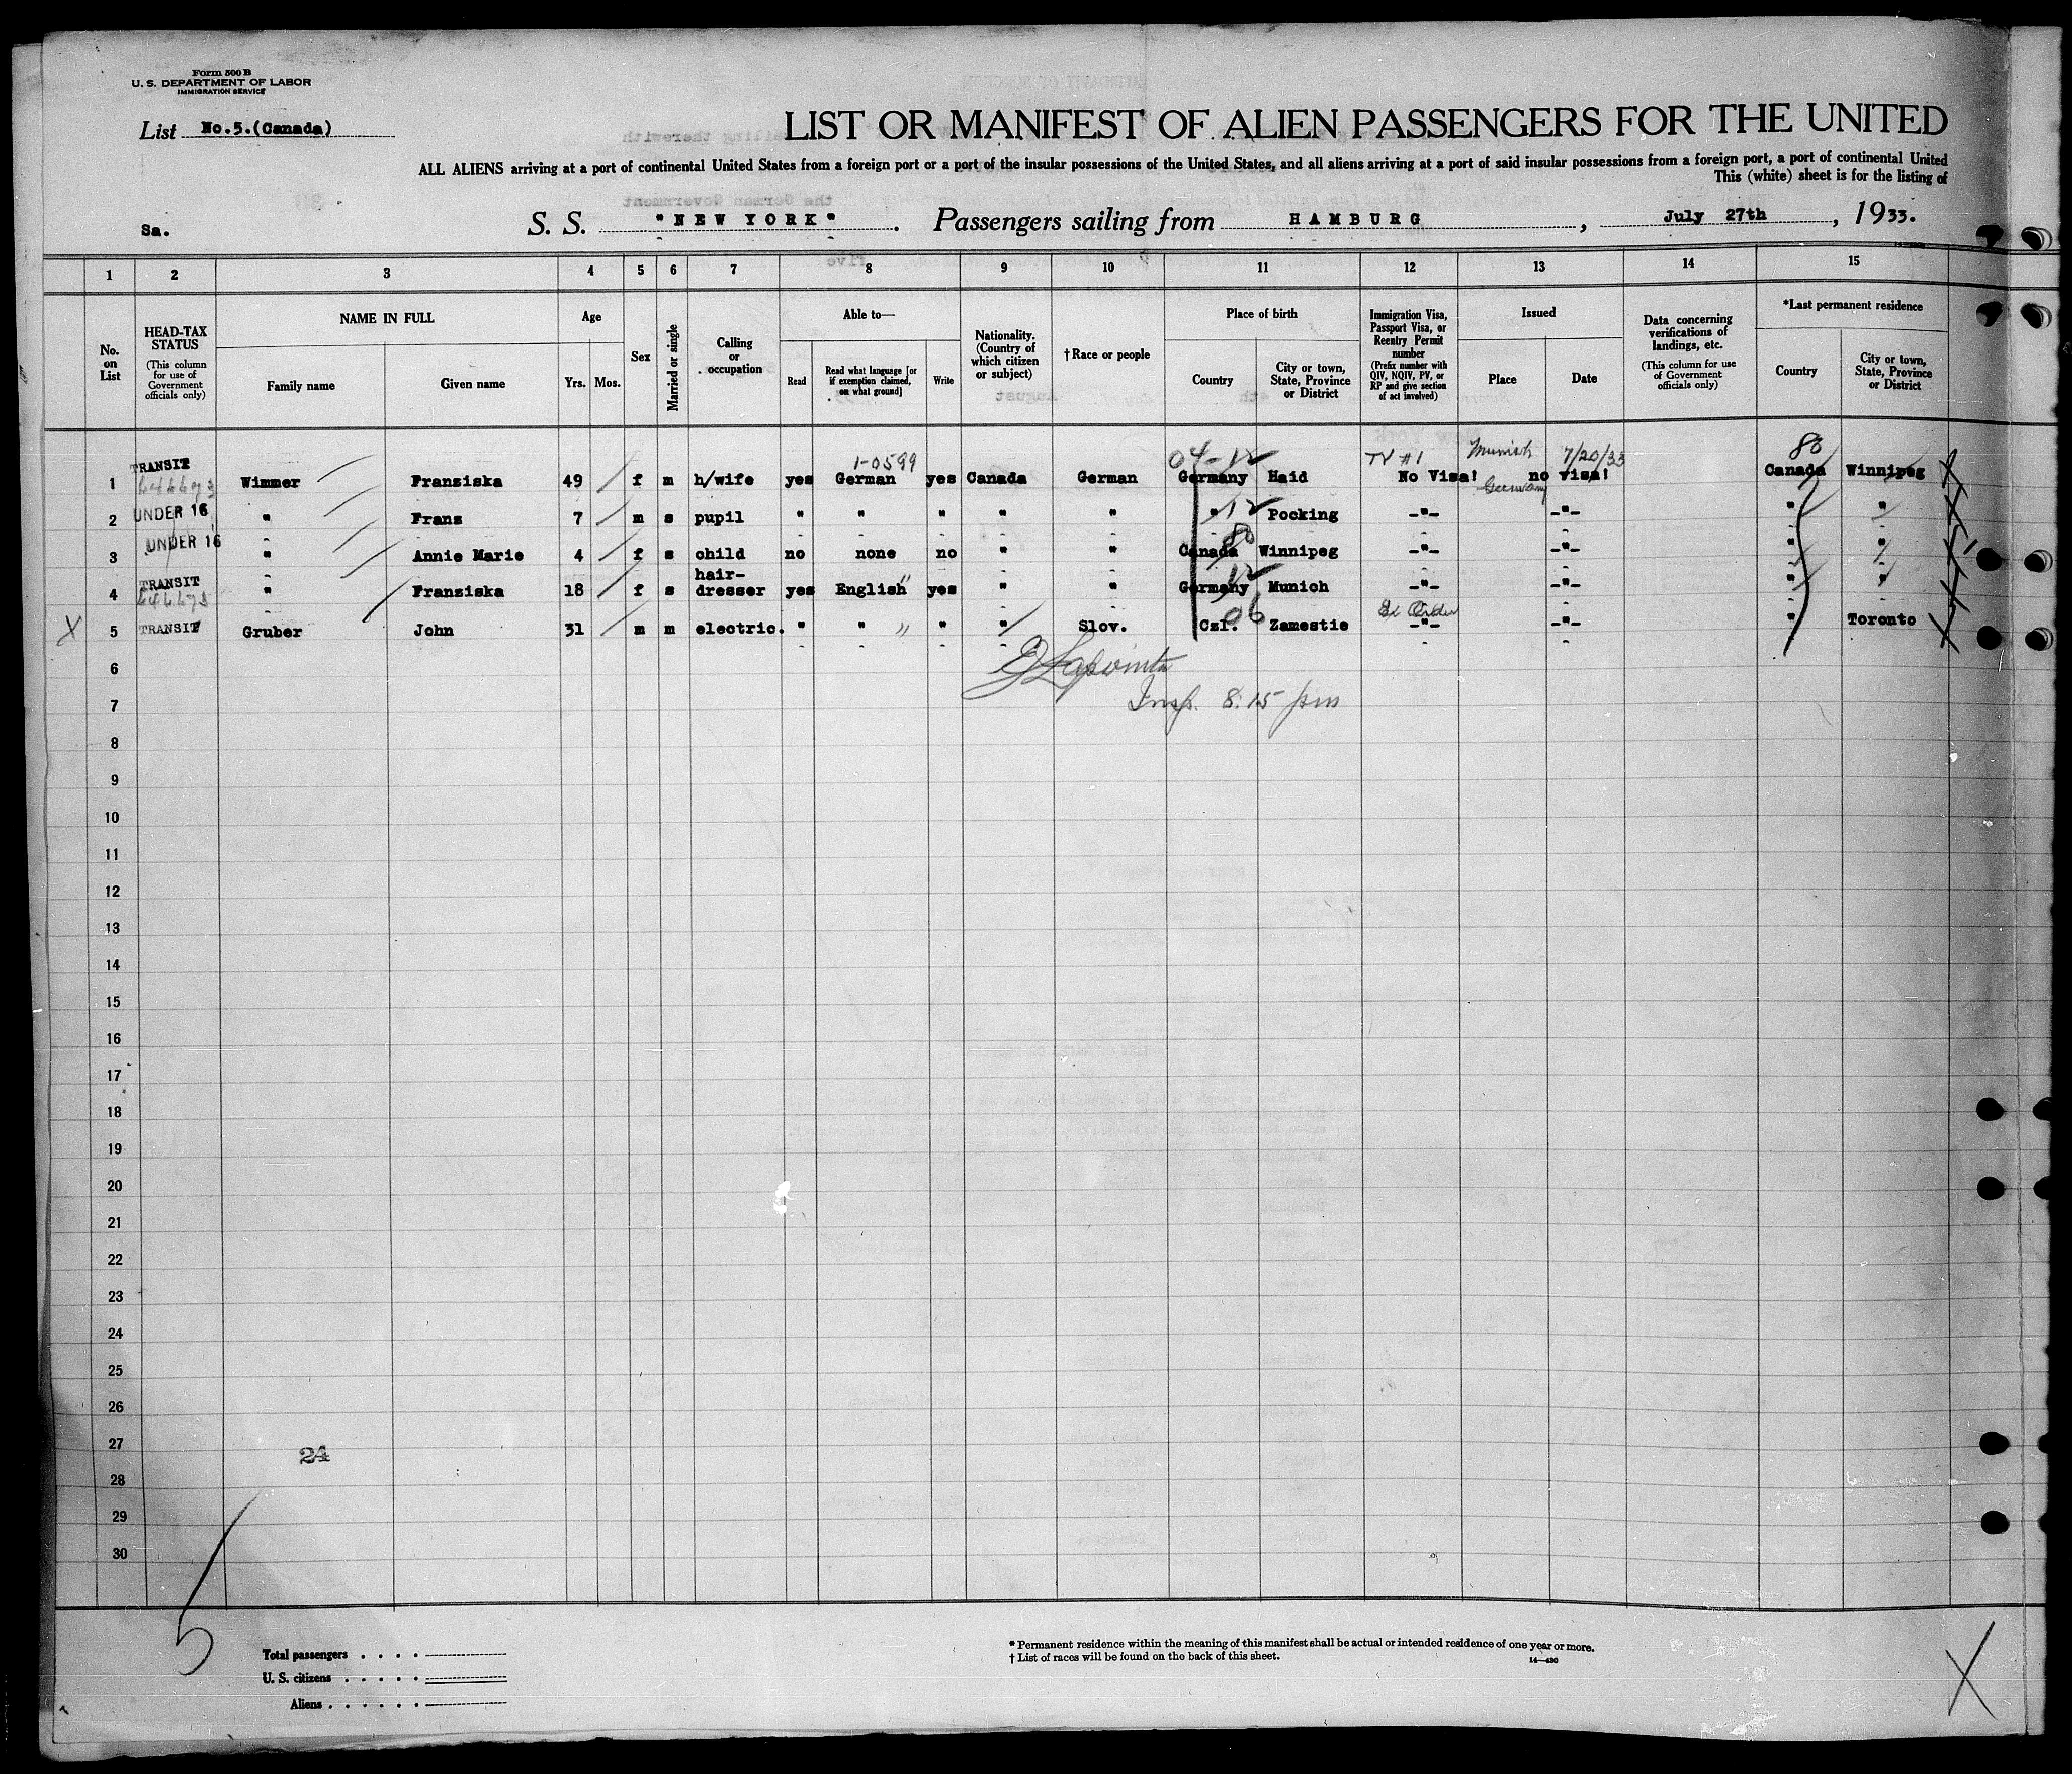 Form 500 B
U. S. DEPARTMENT OF LABOR
IMMIGRATION SERVICE
List No.5.(Canada)
LIST OR MANIFEST OF ALIEN PASSENGERS FOR THE UNITED
ALL ALIENS arriving at a port of continental United States from a foreign port or a port of the insular possessions of the United States, and all aliens arriving at a port of said insular possessions from a foreign port, a port of continental United
This (white) sheet is for the listing of
Sa. S. S. "NEW YORK". Passengers sailing from HAMBURG, July 27th, 1933.
1 2 3 4 5 6 7 8 9 10 11 12 13 14 15
No. on List
HEAD-TAX STATUS
(This column for use of Government officials only)
NAME IN FULL
Family name
Given name
Age
Yrs. Mos.
Sex
Married or single
Calling or occupation
Able to—
Read
Read what language [or if exemption claimed, on what ground]
Write
Nationality. (Country of which citizen or subject)
†Race or people
Place of birth
Country
City or town, State, Province or District
Immigration Visa, Passport Visa, or Reentry Permit number
(Prefix number with QIV, NQIV, PV, or RP and give section of act involved)
Issued
Place
Date
Data concerning verifications of landings, etc.
(This column for use of Government officials only)
*Last permanent residence
Country
City or town, State, Province or District
1-0599 04-12 TV #1 Munich 7/20/33 80
1 TRANSIT Wimmer Franziska 49 f m h/wife yes German yes Canada German Germany Haid No Visa! no visa! Canada Winnipeg
Germany
2 UNDER 16 " Franz 7 m s pupil " " " " " " 12 Pocking -"- -"- " "
3 UNDER 16 " Annie Marie 4 f s child no none no " " Canada 80 Winnipeg -"- -"- " "
4 TRANSIT " Franziska 18 f s hair-dresser yes English yes " " Germany 12 Munich -"- -"- " "
X 5 TRANSIT Gruber John 31 m m electric. " " " " Slov. Czl. 06 Zamestie -"- -"- " Toronto
6
7
Insp. 8:15 pm
8
9
10
11
12
13
14
15
16
17
18
19
20
21
22
23
24
25
26
27
24
28
29
30
5
Total passengers . . . .
U. S. citizens . . . . .
Aliens . . . . . .
* Permanent residence within the meaning of this manifest shall be actual or intended residence of one year or more.
† List of races will be found on the back of this sheet.
14—430
X